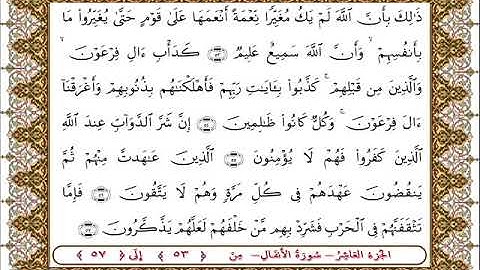 ذَٰلِكَ بِأَنَّ ٱللَّهَ لَمْ يَكُ مُغَيِّرًا نِّعْمَةً أَنْعَمَهَا عَلَىٰ قَوْمٍ حَتَّىٰ يُغَيِّرُوا۟ مَا
بِأَنفُسِهِمْ ۙ وَأَنَّ ٱللَّهَ سَمِيعٌ عَلِيمٌ ﴿٥٣﴾ كَدَأْبِ ءَالِ فِرْعَوْنَ ۙ
وَٱلَّذِينَ مِن قَبْلِهِمْ ۚ كَذَّبُوا۟ بِـَٔايَـٰتِ رَبِّهِمْ فَأَهْلَكْنَـٰهُم بِذُنُوبِهِمْ وَأَغْرَقْنَآ
ءَالَ فِرْعَوْنَ ۚ وَكُلٌّ كَانُوا۟ ظَـٰلِمِينَ ﴿٥٤﴾ إِنَّ شَرَّ ٱلدَّوَآبِّ عِندَ ٱللَّهِ
ٱلَّذِينَ كَفَرُوا۟ فَهُمْ لَا يُؤْمِنُونَ ﴿٥٥﴾ ٱلَّذِينَ عَـٰهَدتَّ مِنْهُمْ ثُمَّ
يَنقُضُونَ عَهْدَهُمْ فِى كُلِّ مَرَّةٍ وَهُمْ لَا يَتَّقُونَ ﴿٥٦﴾ فَإِمَّا
تَثْقَفَنَّهُمْ فِى ٱلْحَرْبِ فَشَرِّدْ بِهِم مَّنْ خَلْفَهُمْ لَعَلَّهُمْ يَذَّكَّرُونَ ﴿٥٧﴾
الجزء العاشر - سورة الأنفال - من ﴿ ٥٣ ﴾ إلى ﴿ ٥٧ ﴾